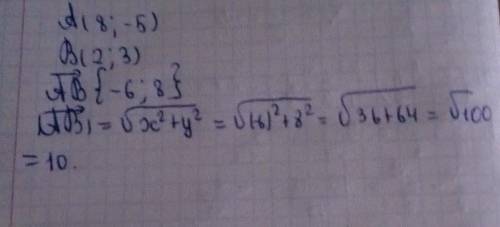 A(8; -5)
B(2; 3)
AB{-6; 8}
|AB| = √x²+y² = √(-6)²+8² = √36+64 = √100
= 10.